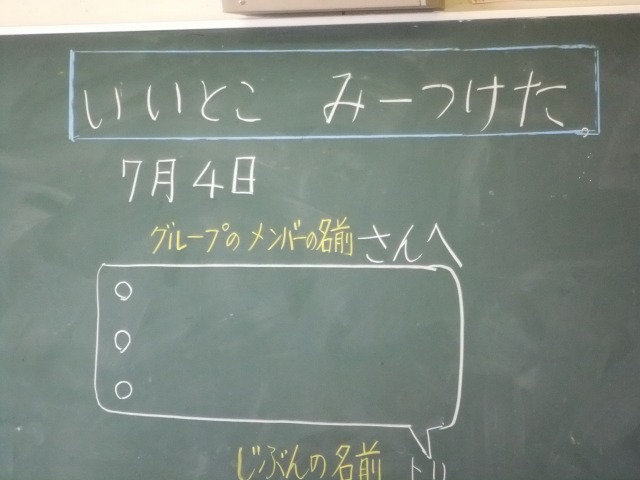 いいとこ みーつけた。
7月4日
グループのメンバーの名前さんへ
○
○
○
じぶんの名前 より